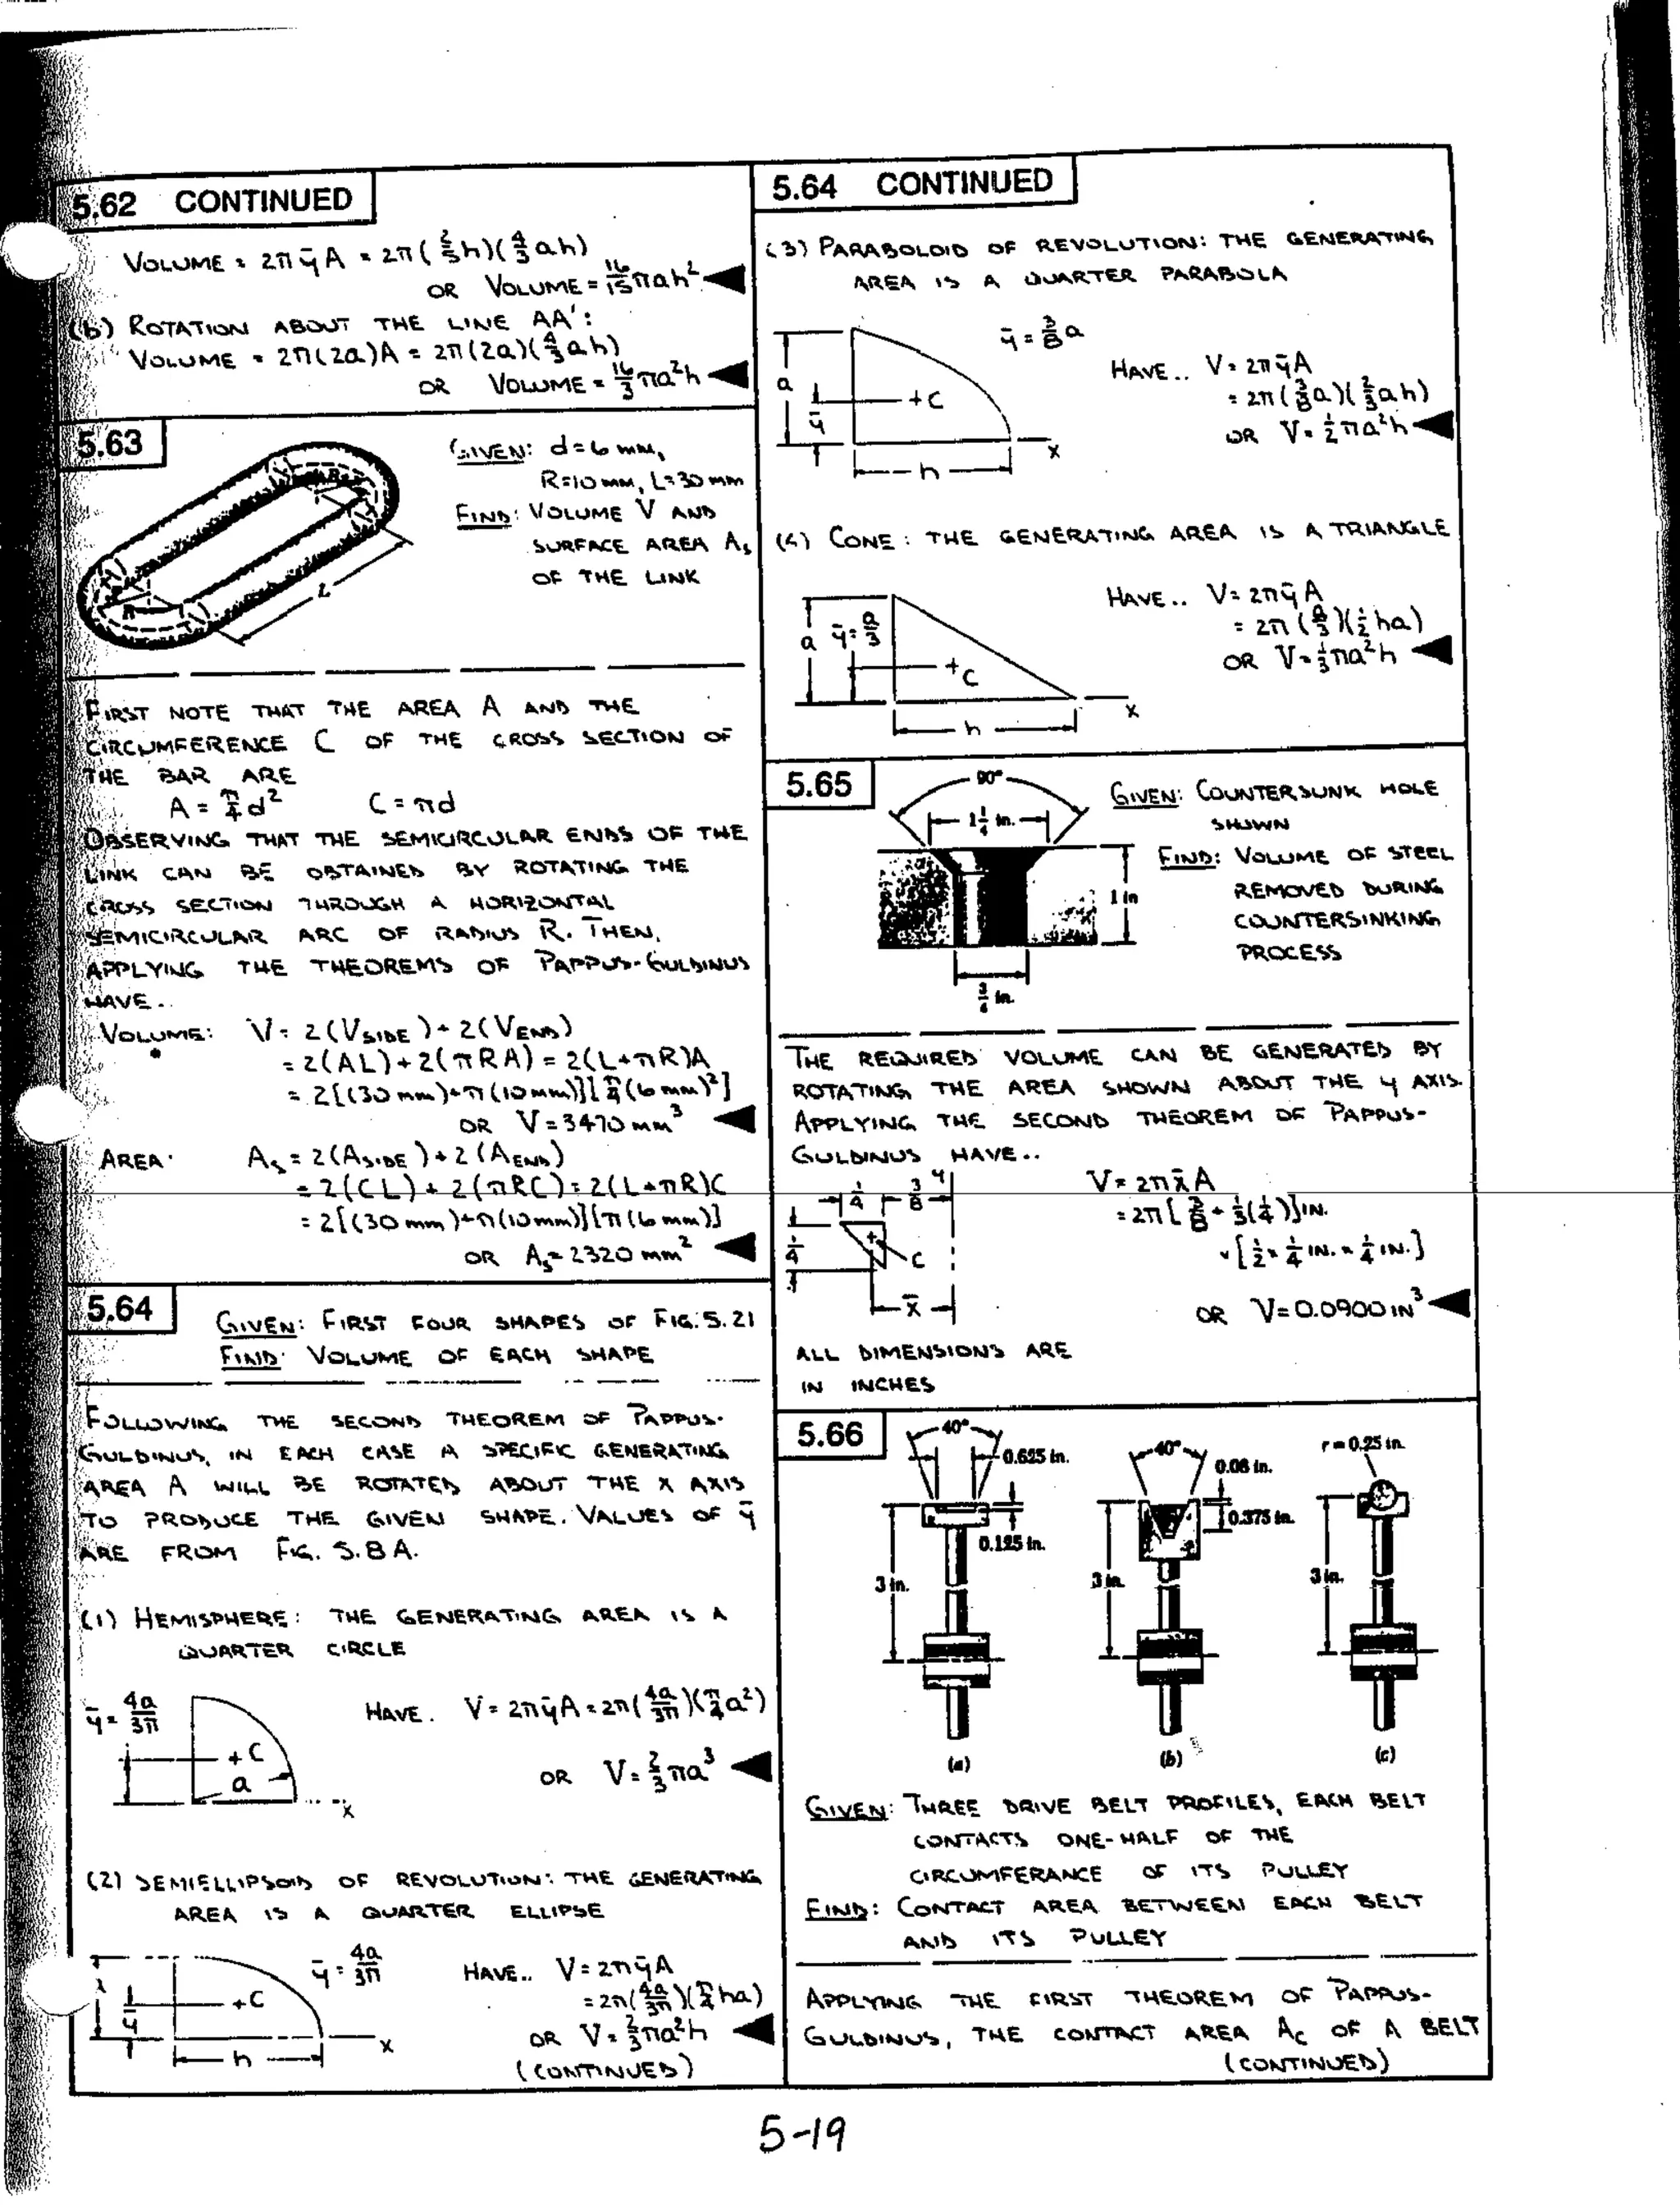 5.62 CONTINUED
VOLUME = 2π ȳ A = 2π ( 2/5 h)( 4/3 ah)
OR VOLUME = 16/15 πah²
(b) ROTATION ABOUT THE LINE AA':
VOLUME = 2π(2a)A = 2π(2a)( 4/3 ah)
OR VOLUME = 16/3 πa²h
5.63
GIVEN: d = 6 mm,
R = 10 mm, L = 30 mm
FIND: VOLUME V AND
SURFACE AREA As
OF THE LINK
R
R
L
FIRST NOTE THAT THE AREA A AND THE
CIRCUMFERENCE C OF THE CROSS SECTION OF
THE BAR ARE
A = π/4 d² C = πd
OBSERVING THAT THE SEMICIRCULAR ENDS OF THE
LINK CAN BE OBTAINED BY ROTATING THE
CROSS SECTION THROUGH A HORIZONTAL
SEMICIRCULAR ARC OF RADIUS R. THEN,
APPLYING THE THEOREMS OF PAPPUS-GULDINUS
HAVE..
VOLUME: V = 2(VSIDE) + 2(VEND)
= 2(AL) + 2(πRA) = 2(L+πR)A
= 2[(30 mm)+π(10 mm)][π/4 (6 mm)²]
OR V = 3470 mm³
AREA: As = 2(ASIDE) + 2(AEND)
= 2(CL) + 2(πRC) = 2(L+πR)C
= 2[(30 mm)+π(10mm)][π(6 mm)]
OR As = 2320 mm²
5.64
GIVEN: FIRST FOUR SHAPES OF FIG. 5.21
FIND: VOLUME OF EACH SHAPE
FOLLOWING THE SECOND THEOREM OF PAPPUS-
GULDINUS, IN EACH CASE A SPECIFIC GENERATING
AREA A WILL BE ROTATED ABOUT THE X AXIS
TO PRODUCE THE GIVEN SHAPE. VALUES OF ȳ
ARE FROM FIG. 5.8A.
(1) HEMISPHERE: THE GENERATING AREA IS A
QUARTER CIRCLE
ȳ = 4a/3π
+C
a
x
HAVE. V = 2πȳA = 2π( 4a/3π )( π/4 a²)
OR V = 2/3 πa³
(2) SEMIELLIPSOID OF REVOLUTION: THE GENERATING
AREA IS A QUARTER ELLIPSE
ȳ = 4a/3π
+C
ȳ
h
x
HAVE.. V = 2πȳA
= 2π( 4a/3π )( π/4 ha)
OR V = 2/3 πa²h
(CONTINUED)
5.64 CONTINUED
(3) PARABOLOID OF REVOLUTION: THE GENERATING
AREA IS A QUARTER PARABOLA
ȳ = 3/8 a
a
ȳ
+C
h
x
HAVE.. V = 2πȳA
= 2π( 3/8 a)( 2/3 ah)
OR V = 1/2 πa²h
(4) CONE: THE GENERATING AREA IS A TRIANGLE
a
ȳ = a/3
+C
h
x
HAVE.. V = 2πȳA
= 2π ( a/3 )( 1/2 ha)
OR V = 1/3 πa²h
5.65
90°
1 1/4 in.
1 in
3/4 in.
GIVEN: COUNTERSUNK HOLE
SHOWN
FIND: VOLUME OF STEEL
REMOVED DURING
COUNTERSINKING
PROCESS
THE REQUIRED VOLUME CAN BE GENERATED BY
ROTATING THE AREA SHOWN ABOUT THE y AXIS.
APPLYING THE SECOND THEOREM OF PAPPUS-
GULDINUS HAVE..
1/4
3/8
y
1/4
C
x̄
V = 2πx̄A
= 2π [ 3/8 + 1/3(1/4)] IN.
× [ 1/2 × 1/4 IN. × 1/4 IN.]
OR V = 0.0900 IN³
ALL DIMENSIONS ARE
IN INCHES
5.66
40°
0.625 in.
0.125 in.
3 in.
(a)
40°
0.08 in.
0.375 in.
3 in.
(b)
r = 0.25 in.
3 in.
(c)
GIVEN: THREE DRIVE BELT PROFILES, EACH BELT
CONTACTS ONE-HALF OF THE
CIRCUMFERANCE OF ITS PULLEY
FIND: CONTACT AREA BETWEEN EACH BELT
AND ITS PULLEY
APPLYING THE FIRST THEOREM OF PAPPUS-
GULDINUS, THE CONTACT AREA Ac OF A BELT
(CONTINUED)
5-19